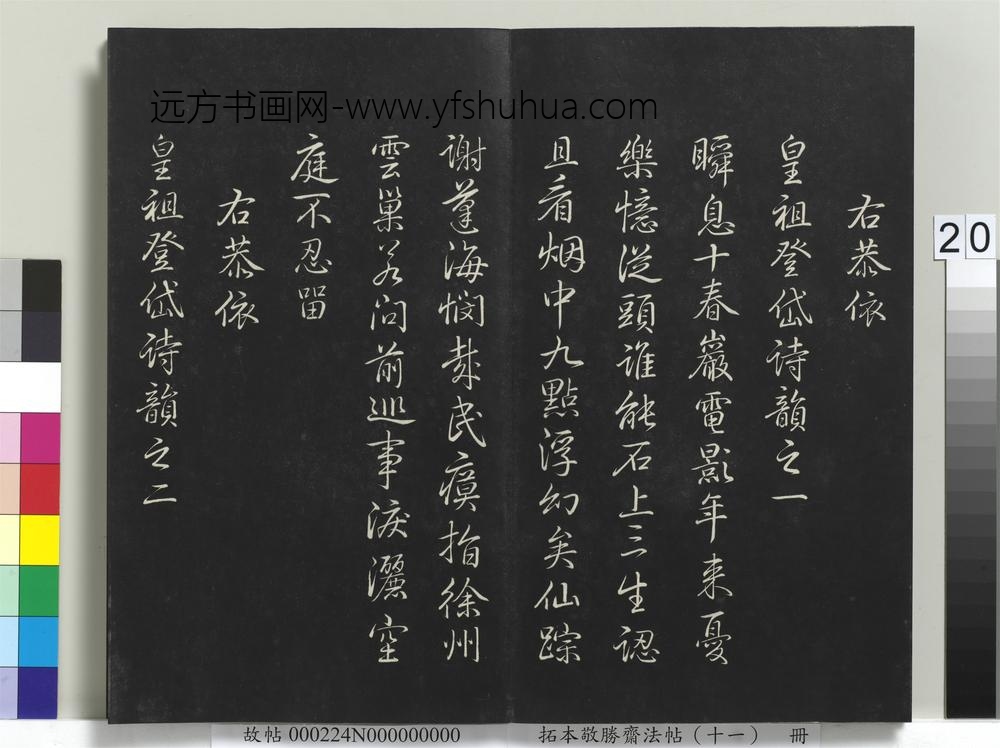 远方书画网-www.yfshuhua.com
右恭依
皇祖登岱詩韻之一
瞬息十春巖電影年來憂
樂憶從頭誰能石上三生認
且看烟中九點浮幻矣仙踪
謝蓬海憫哉民瘼指徐州
雲巢若问前巡事淚灑空
庭不忍留
右恭依
皇祖登岱詩韻之二
20
故帖 000224N000000000 拓本敬勝齋法帖（十一） 冊